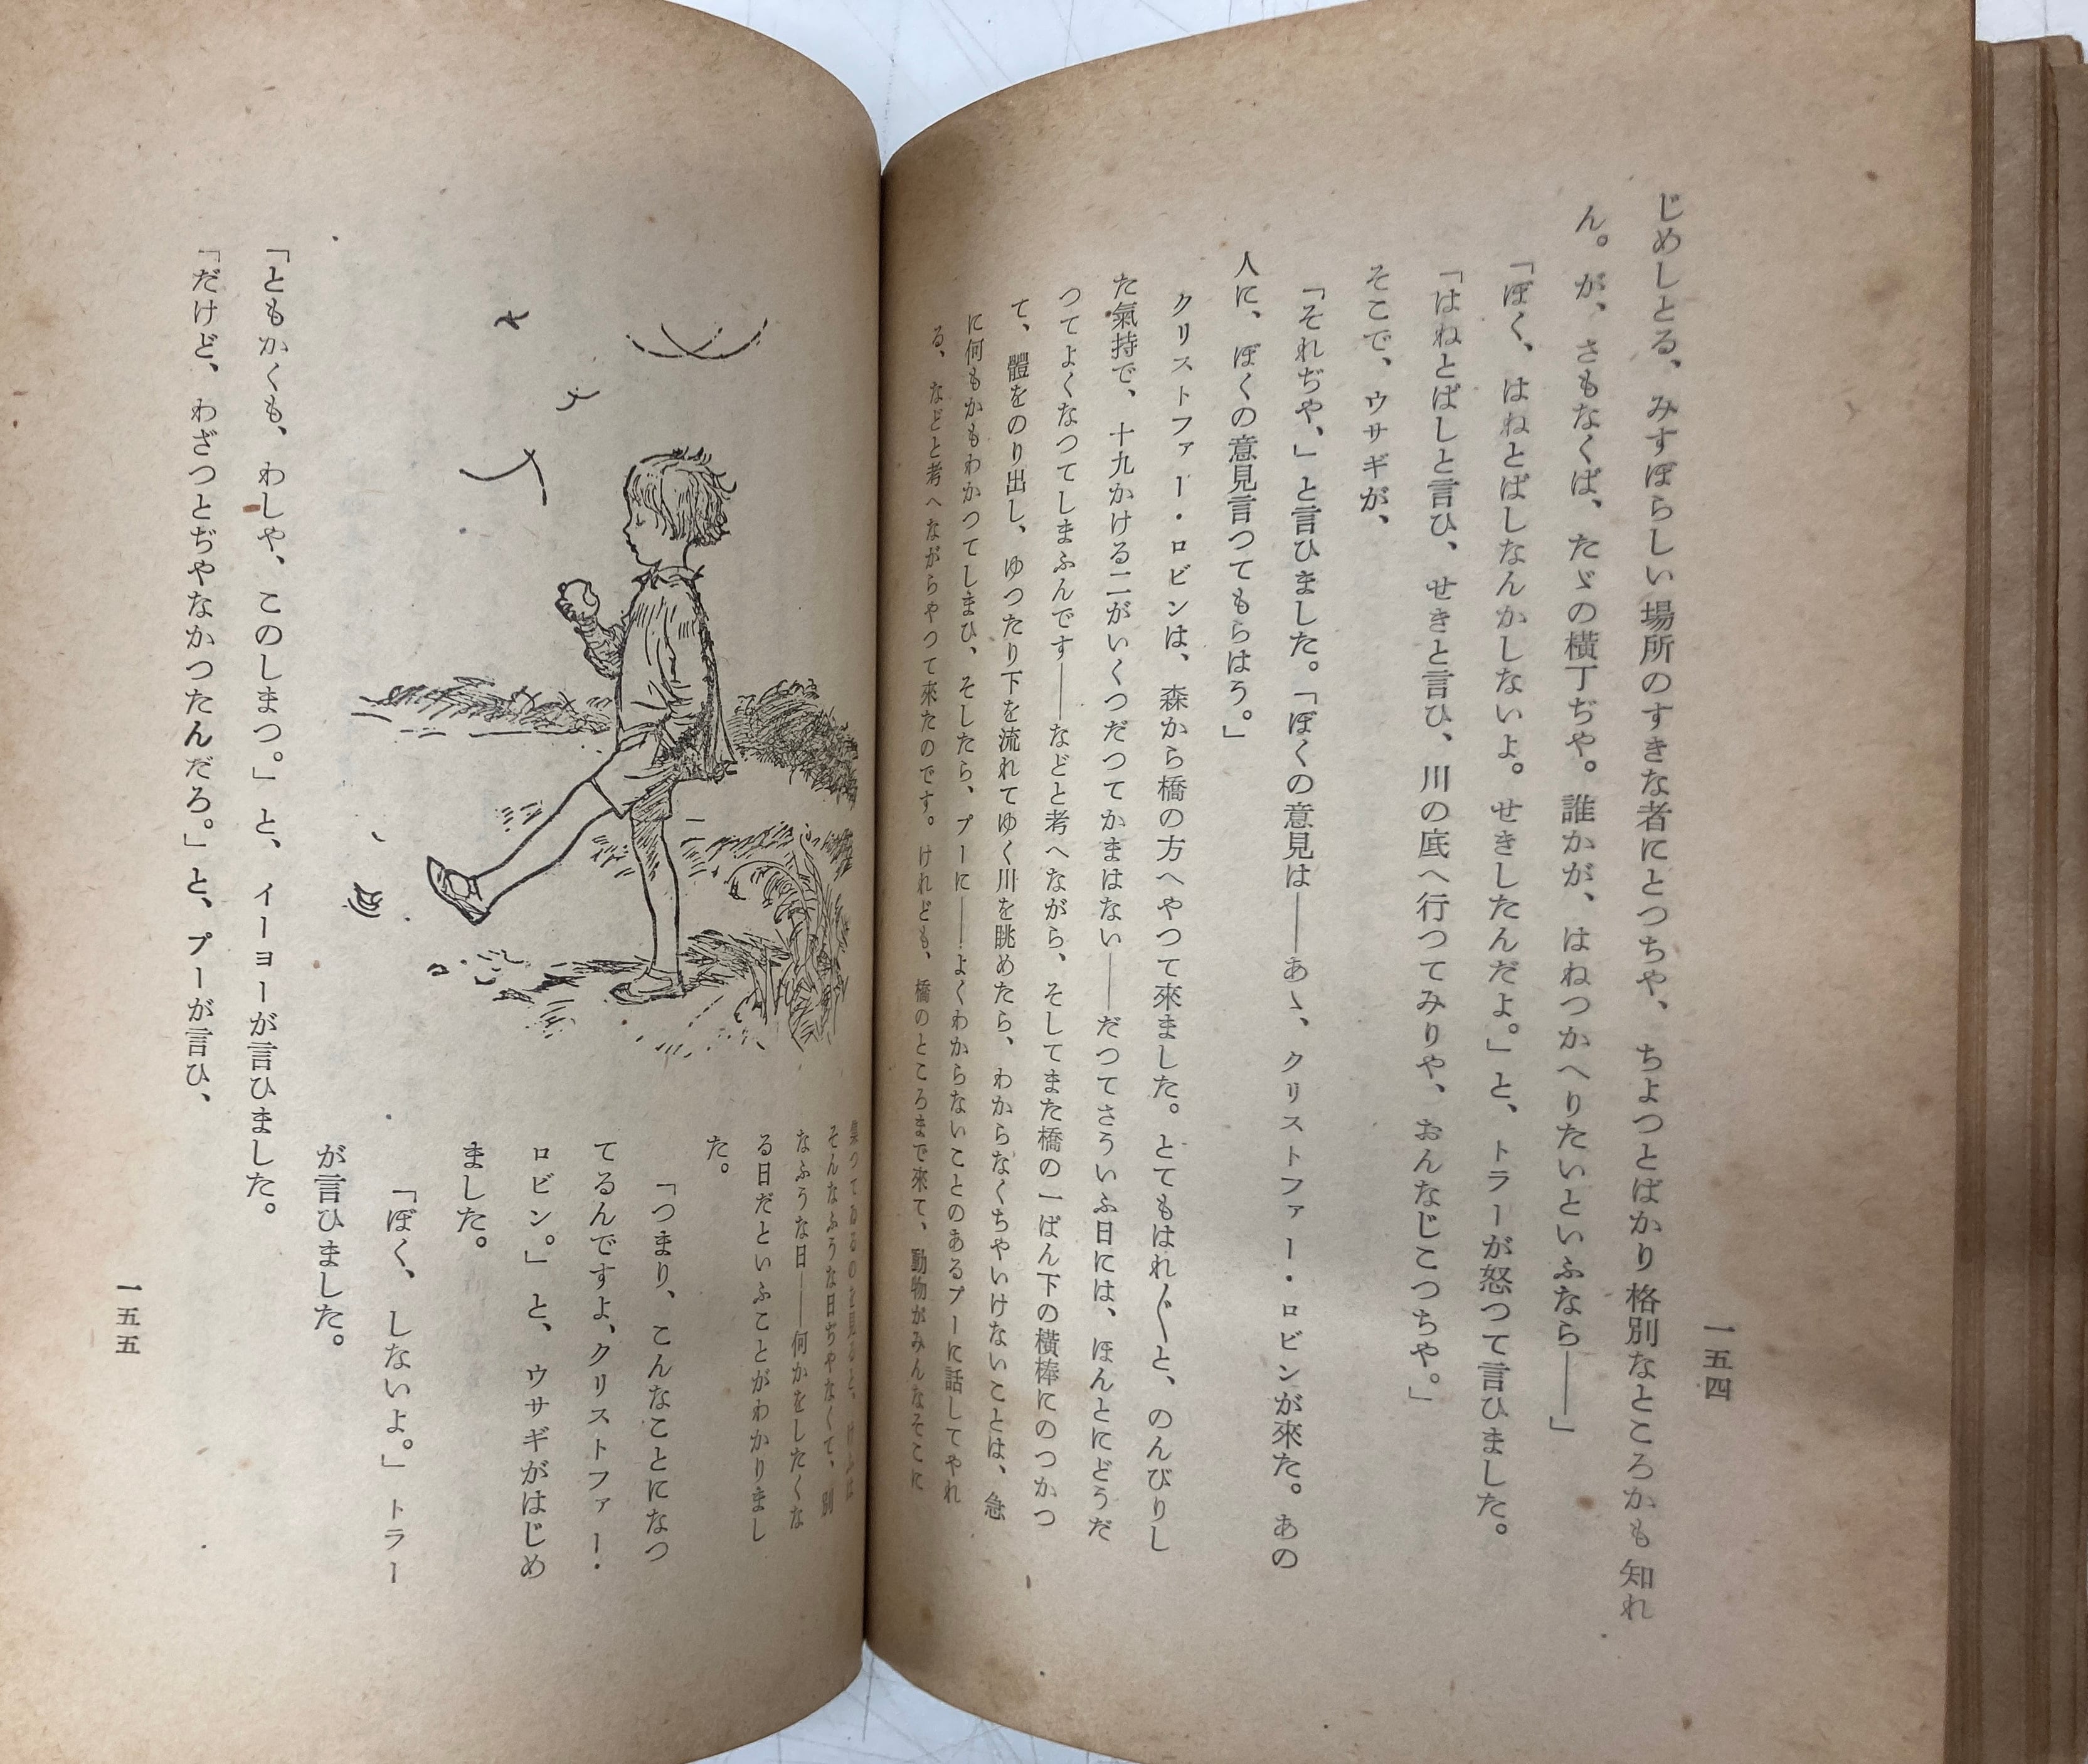 じめしとる、みすぼらしい場所のすきな者にとつちや、ちよつとばかり格別なところかも知れ
ん。が、さもなくば、たゞの横丁ぢや。誰かが、はねつかへりたいといふなら——」
「ぼく、はねとばしなんかしないよ。せきしたんだよ。」と、トラーが怒つて言ひました。
「はねとばしと言ひ、せきと言ひ、川の底へ行つてみりや、おんなじこつちや。」
そこで、ウサギが、
「それぢや、」と言ひました。「ぼくの意見は——あゝ、クリストファー・ロビンが來た。あの
人に、ぼくの意見言つてもらはう。」
クリストファー・ロビンは、森から橋の方へやつて來ました。とてもはれ〴〵と、のんびりし
た氣持で、十九かける二がいくつだつてかまはない——だつてさういふ日には、ほんとにどうだ
つてよくなつてしまふんです——などと考へながら、そしてまた橋の一ばん下の横棒にのつかつ
て、體をのり出し、ゆつたり下を流れてゆく川を眺めたら、わからなくちやいけないことは、急
に何もかもわかつてしまひ、そしたら、プーに——よくわからないことのあるプーに話してやれ
る、などと考へながらやつて來たのです。けれども、橋のところまで來て、動物がみんなそこに
一五四
集つてゐるのを見ると、けふは
そんなふうな日ぢやなくて、別
なふうな日——何かをしたくな
る日だといふことがわかりまし
た。
「つまり、こんなことになつ
てるんですよ、クリストファー・
ロビン。」と、ウサギがはじめ
ました。
「ぼく、しないよ。」トラー
が言ひました。
「ともかくも、わしや、このしまつ。」と、イーヨーが言ひました。
「だけど、わざつとぢやなかつたんだろ。」と、プーが言ひ、
一五五